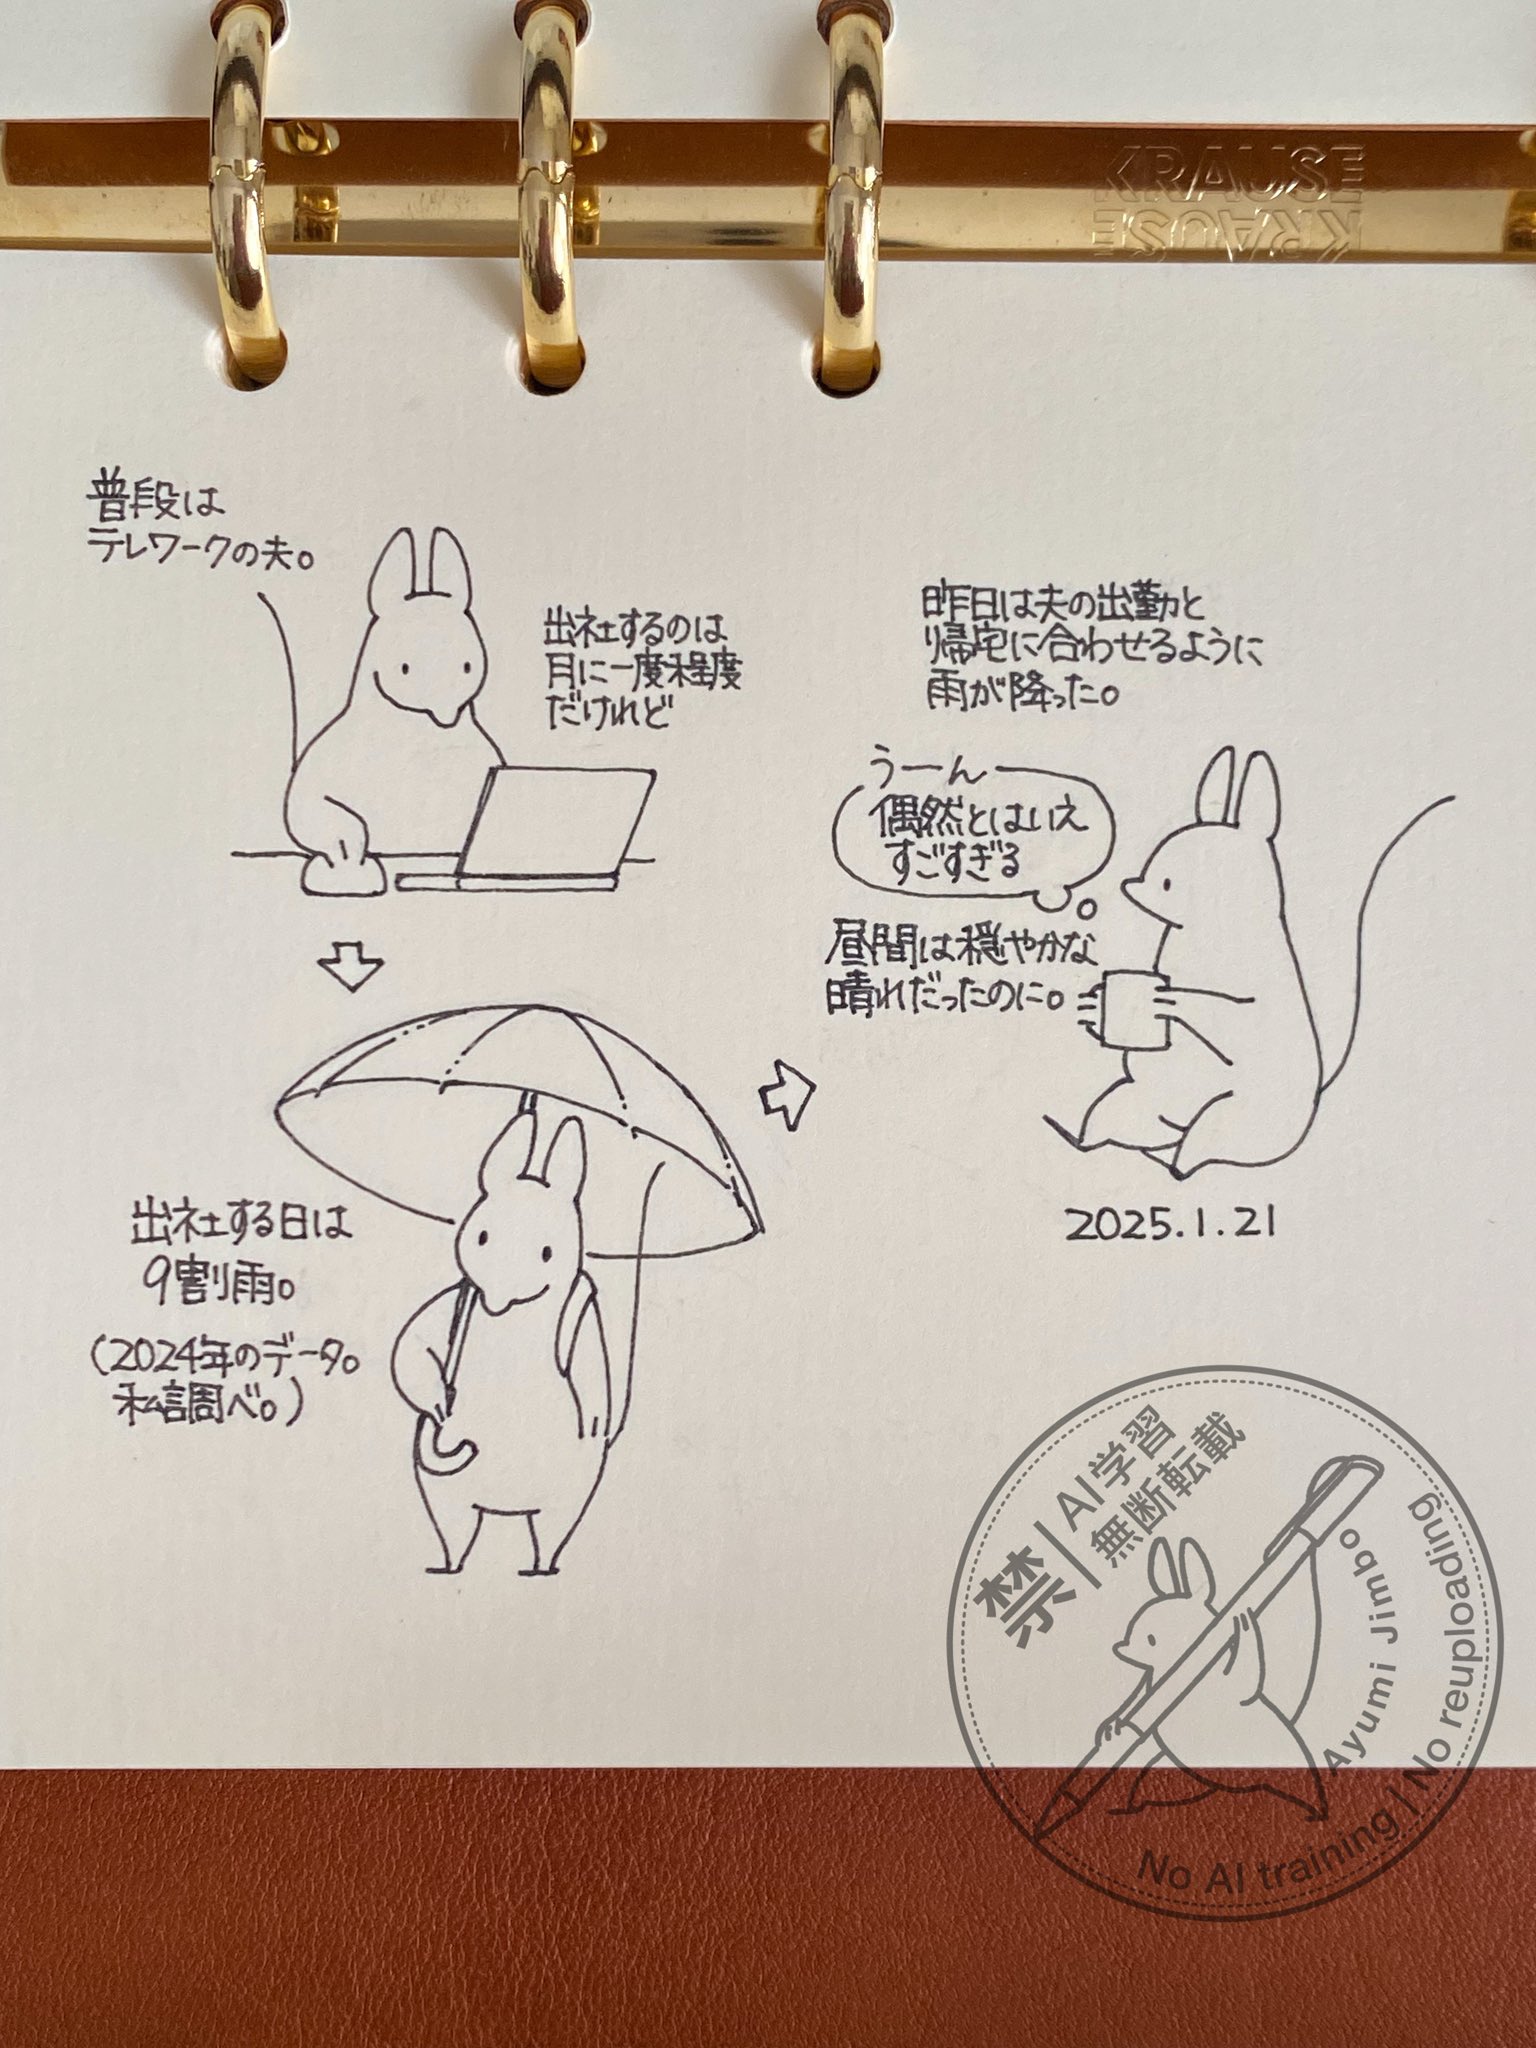 KRAUSE
KRAUSE
普段は
テレワークの夫。
出社するのは
月に一度程度
だけれど
出社する日は
9割雨。
(2024年のデータ。
私調べ。)
昨日は夫の出勤と
帰宅に合わせるように
雨が降った。
うーん
偶然とはいえ
すごすぎる
昼間は穏やかな
晴れだったのに。
2025.1.21
禁
AI学習
無断転載
Ayumi Jimbo
No AI training | No reuploading